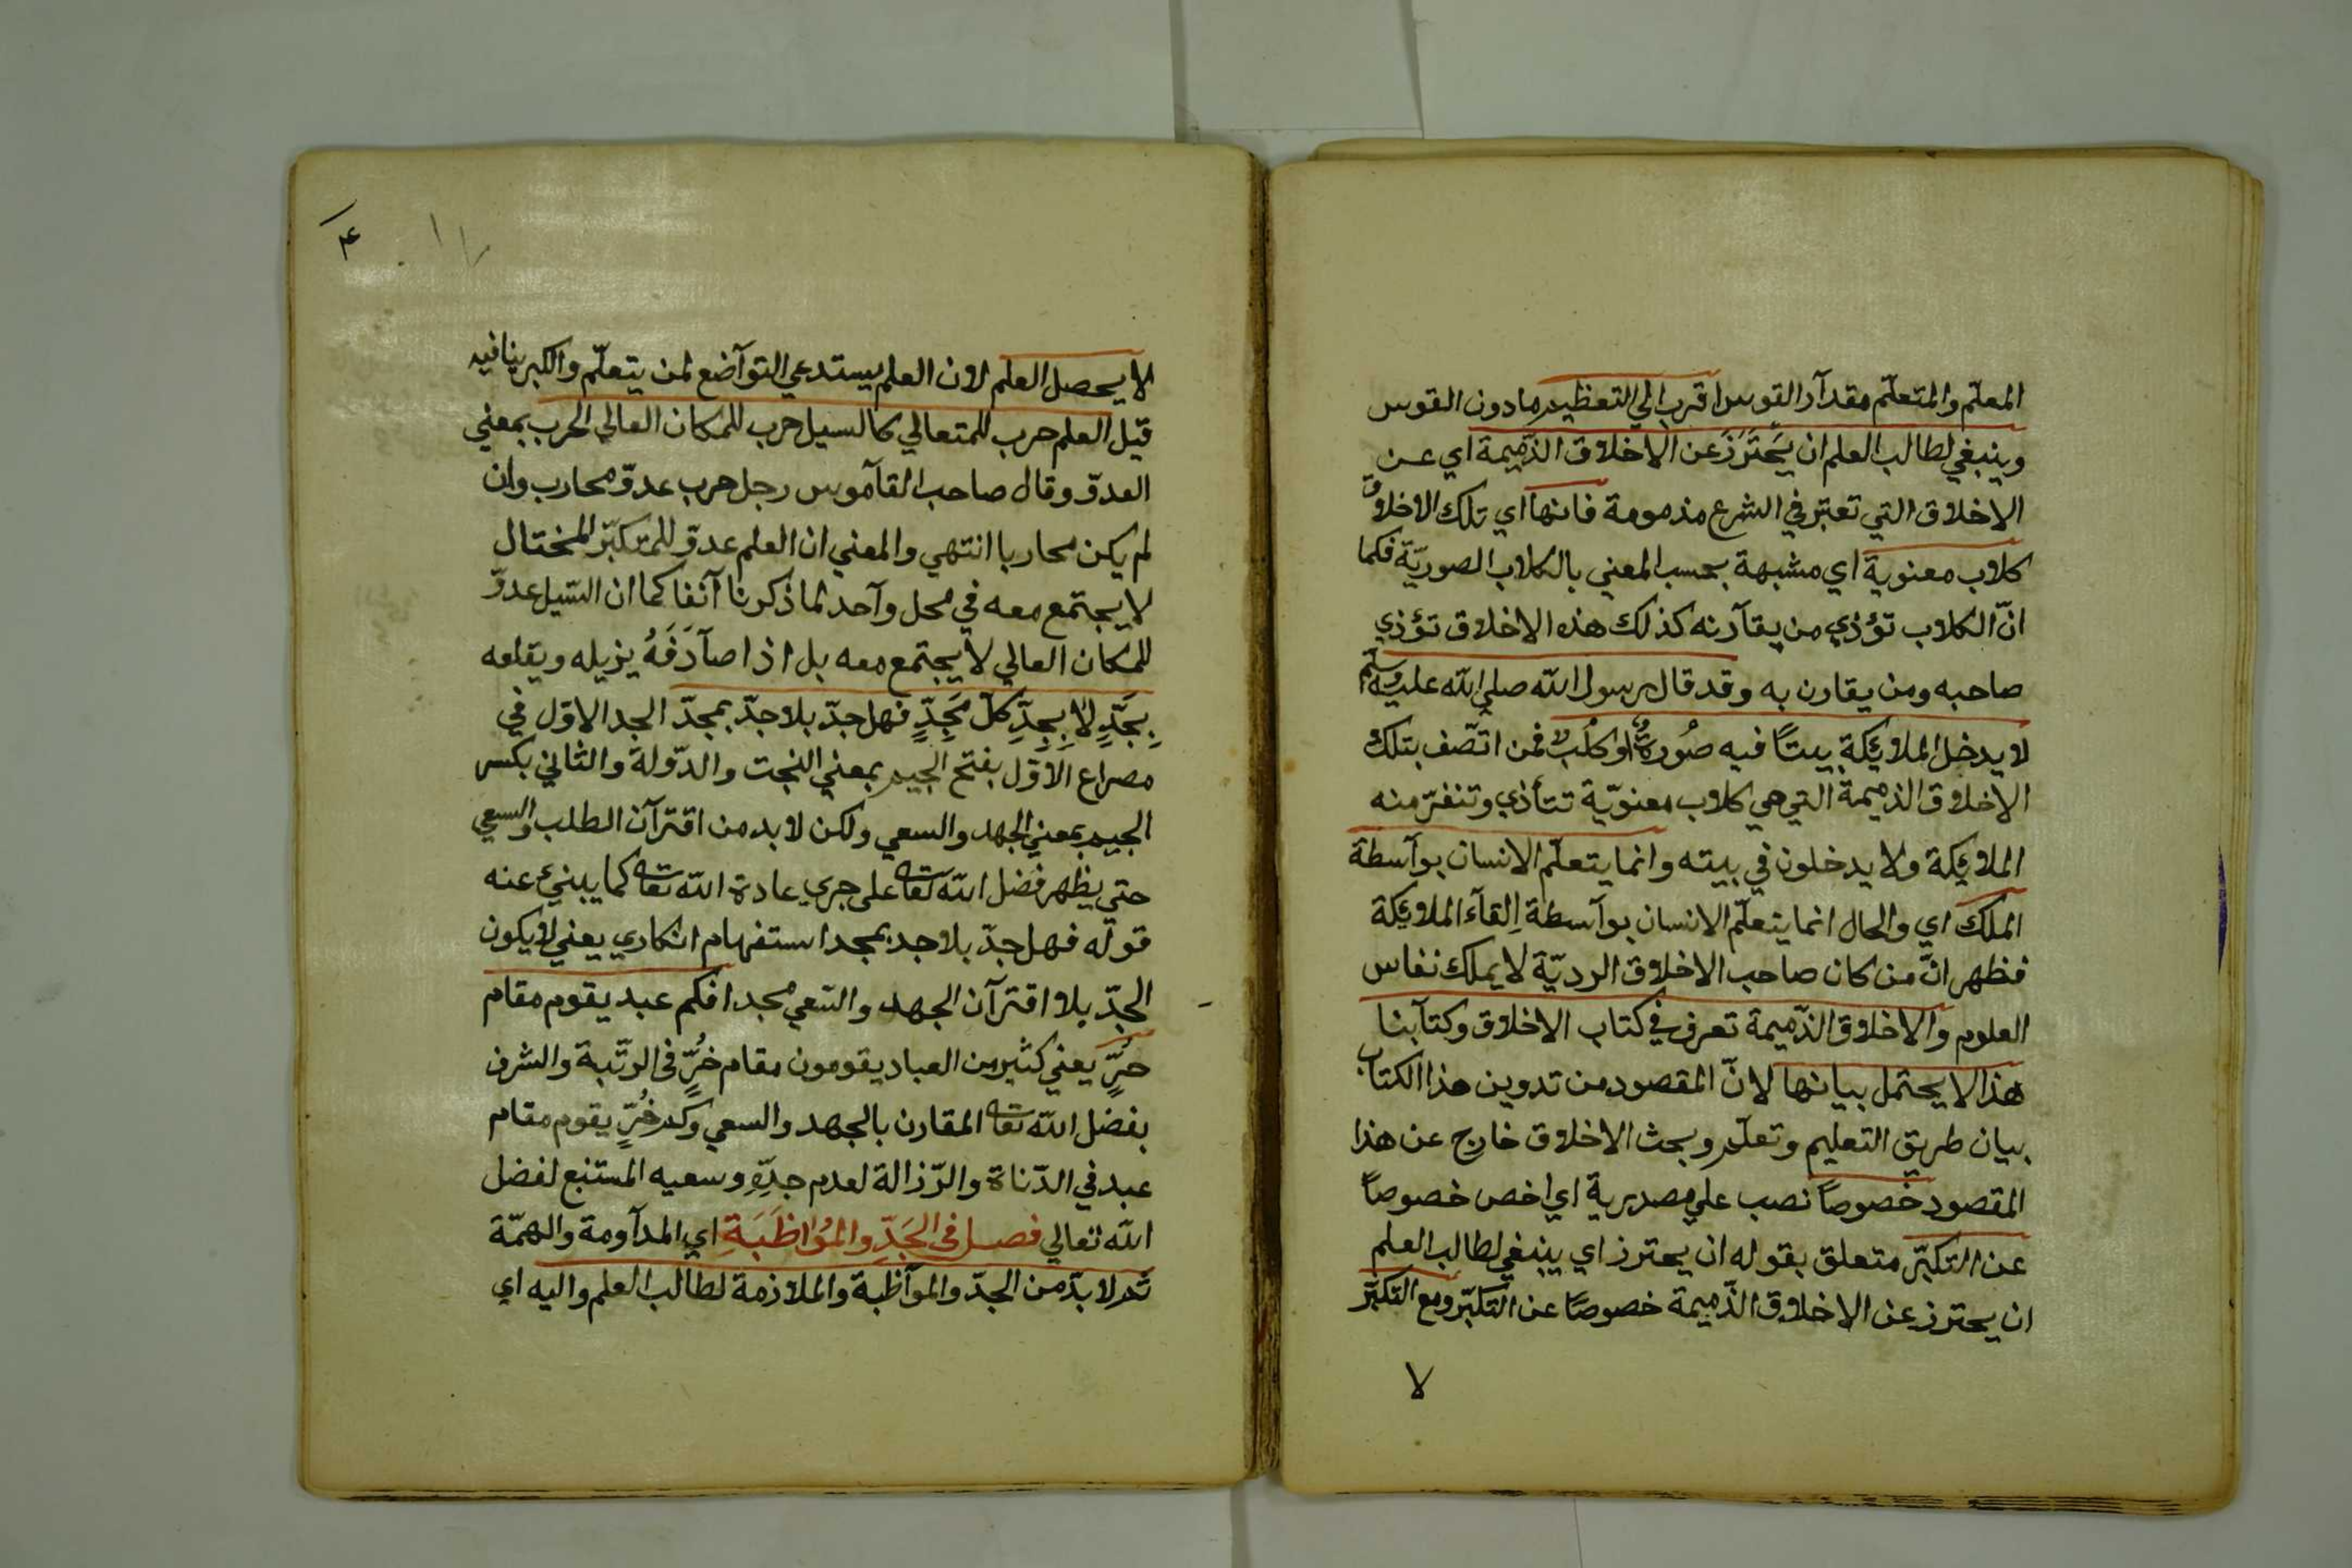 المعلّم والمتعلّم مقدآر القوس اقرب الي التعظيم مادون القوس
وينبغي لطالب العلم ان يَحْتَرَزَ عن الاخلاق الذّميمة اي عن
الاخلاق التي تعتبر في الشرع مذمومة فانها اي تلك الاخلاق
كلاب معنوية اي مشبهة بحسب المعني بالكلاب الصوريّة فكما
انّ الكلاب تؤذي من يقآرنه كذلك هذه الاخلاق تؤذي
صاحبه ومن يقارن به وقد قال رسول اللّه صلي اللّه عليه وسلّم
لا يدخل الملائكة بيتاً فيه صُورةٌ او كلْب فمن اتّصف بتلك
الاخلاق الذميمة التي هي كلاب معنويّة تتأذي وتنفرّ منه
الملائكة ولا يدخلون في بيته وانما يتعلّم الانسان بوآسطة
الملك اي والحال انما يتعلّم الانسان بوآسطة اِلقآء الملائكة
فظهر انّ من كان صاحب الاخلاق الرديّة لا يملك نفاس
العلوم والاخلاق الذّميمة تعرف في كتاب الاخلاق وكتآبنا
هذا لا يحتمل بيانها لانّ المقصود من تدوين هذا الكتاب
بيان طريق التعليم وتعلّم وبحث الاخلاق خارج عن هذا
المقصود خصوصاً نصب علي مصدرية اي اخص خصوصاً
عن التكبّر متعلق بقوله ان يحترز اي ينبغي لطالب العلم
ان يحترز عن الاخلاق الذّميمة خصوصًا عن التكبّر ومع التكبّر
لا
۴
لا يحصل العلم لان العلم يستدعي التوآضع لمن يتعلّم والكبر ينافيه
قيل العلم حرب للمتعالي كالسيل حرب للمكان العالي الحرب بمعني
العدوّ وقال صاحب القآموس رجل حرب عدوّ محارب وان
لم يكن محاربا انتهي والمعني ان العلم عدوّ للمتكبّر المختال
لا يجتمع معه في محل وآحد لما ذكرنا آنفا كما ان السّيل عدوّ
للمكان العالي لا يجتمع معه بل اذا صآدَفَهُ يزيله ويقلعه
بِجَدٍّ لا بِجِدِّ كلّ مَجِدٍّ فهل جدّ بلا جدّ بمجدّ الجد الاوّل في
مصراع الاوّل بفتح الجيم بمعني البخت والدّولة والثاني بكسر
الجيم بمعني الجهد والسعي ولكن لا بد من اقترآن الطلب والسعي
حتي يظهر فضل اللّه تعا على جري عادة اللّه تعا كما يبنيئ عنه
قوله فهل جدّ بلا جد بمجد استفهام انكاري يعني لا يكون
الجدّ بلا اقترآن الجهد والسّعي مجدا فكم عبد يقوم مقام
حرٍّ يعني كثير من العباد يقومون مقام حُرٍّ في الرتّبة والشرف
بفضل اللّه تعا المقارن بالجهد والسعي وكم حُرٍّ يقوم مقام
عبد في الدّناة والرّزالة لعدم جدّهِ وسعيه المستتبع لفضل
اللّه تعالي فصل في الجَدِّ والمُوَاظَبَةِ اي المدآومة والهمّة
ثم لا بدّ من الجدّ والموآظبة والملازمة لطالب العلم واليه اي